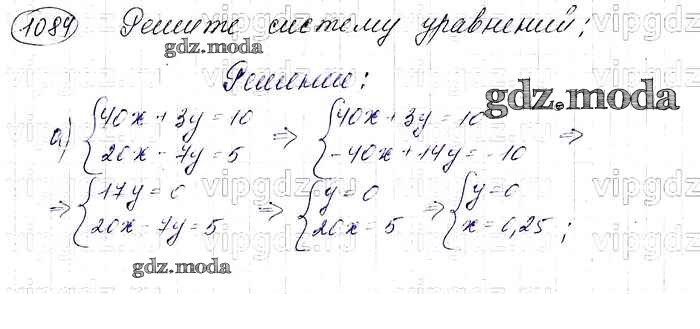 1084 Решите систему уравнений;
gdz.moda
Решение:
gdz.moda
а) {40x + 3y = 10 ⇒ {40x + 3y = 10 ⇒
{20x - 7y = 5 {-40x + 14y = -10
⇒ {17y = 0 ⇒ {y = 0 ⇒ {y = 0
{20x - 7y = 5 {20x = 5 {x = 0,25;
gdz.moda
vipgdz